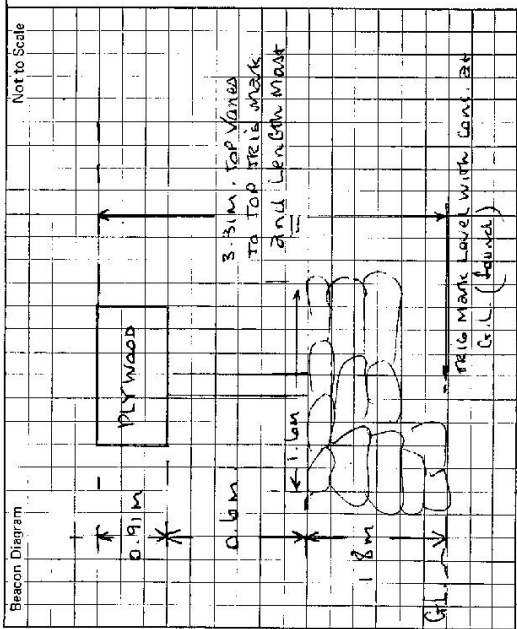 Beacon Diagram
Not to Scale
PLYWOOD
0.91m
0.6m
1.8m
1.6m
G.L.
3.31m. Top Vanes
To Top TRIG Mark
and Length Mast
TRIG Mark Level with Conc. at
G.L. (found)